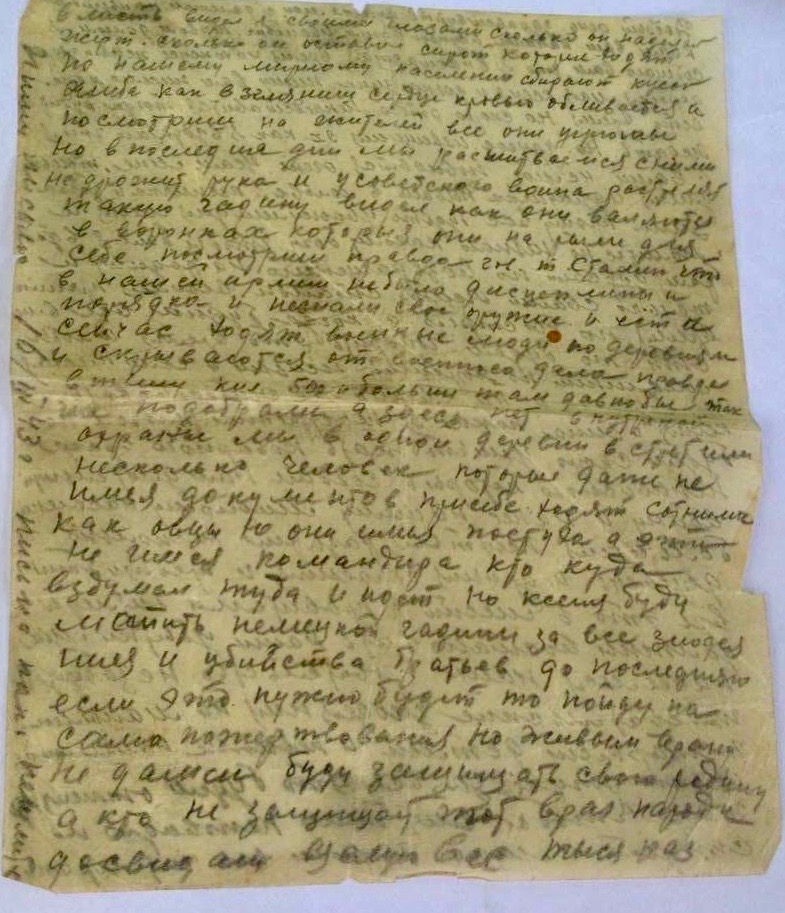 видел я своими глазами сколько он наделал
жерт. сколько он оставил сирот которые ходят
по нашему мирному населению сбирают кусок
хлеба как взглянеш сердце кровью обливается и
посмотриш на жителей все они
но в последние дни мы расшитваемся сними
недрожит рука и усоветского воина
такую гадину видел как они валяются
в воронках которых они на рыли для
себе посмотриш правда т Сталин что
в нашей армии небыло дисциплины и
порядка и свое оружие и
сейчас ходят военные люди по деревням
и скрываются от военного дела правда
в там давно бы их
подобрали а здесь нет
охраны мы в одной деревни в стретили
несколько человек которые даже не
имея документов присебе ходят сотнями
как овцы но они имея пастуха а
не имея командира кто куда
вздумал туда и идет но ксеня буду
мстить немецкой гадини за все злодея
ния и убийства братьев до последняго
если это нужно будет то пойду на
само пожертвования но живым врагу
не дамся буду защищать свою родину
а кто не защищает тот враг народа
досвидания Целую вас тыся раз
писал письмо 16/III 43 г письмо